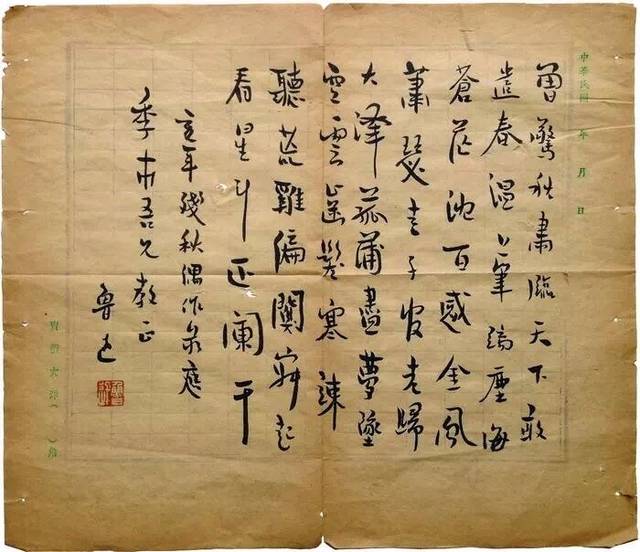 中華民國 年 月 日
曾驚秋肅臨天下敢
遣春溫上筆端塵海
蒼茫沈百感金風
蕭瑟走千官老歸
大澤菰蒲盡夢墜
空雲齒髮寒竦
聽荒雞偏闃寂起
看星斗正闌干
亥年殘秋偶作錄應
季巿吾兄教正
魯迅